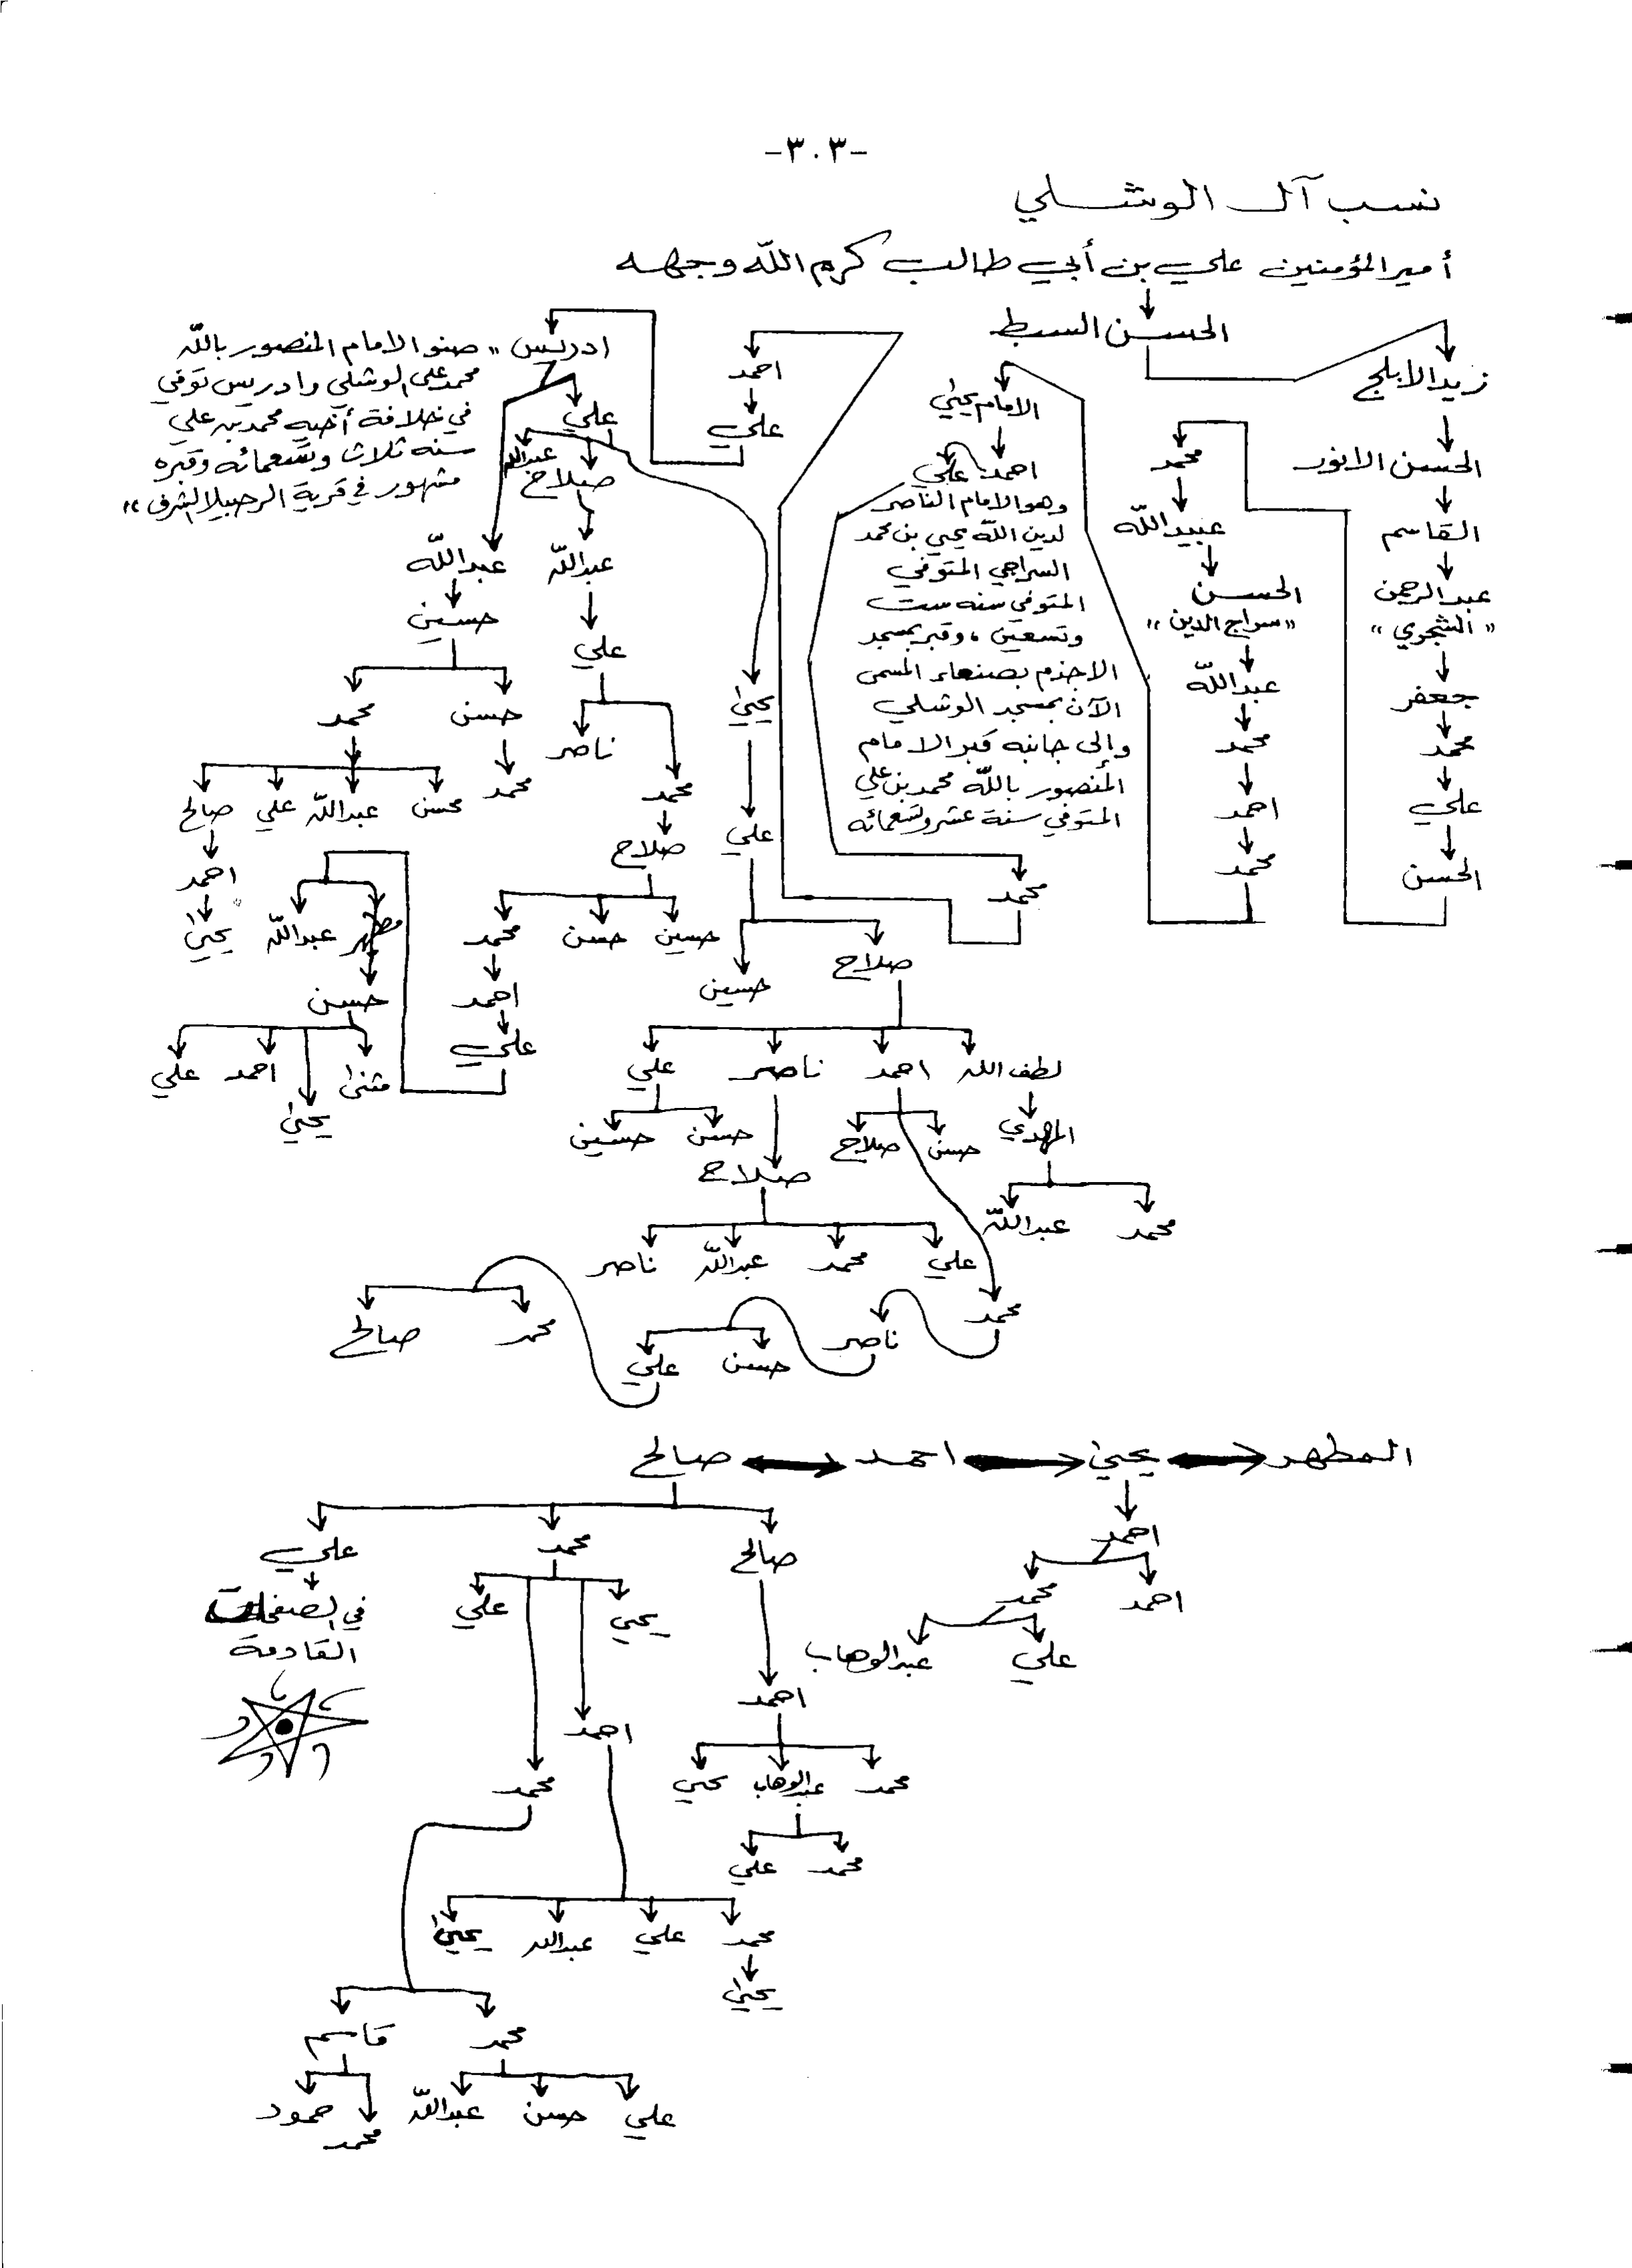 -٣٠٣-
نسب آل الوشلي
أمير المؤمنين علي بن أبي طالب كرم الله وجهه
الحسن السبط
زيد الابلج
الحسن الانور
القاسم
عبدالرحمن
"الشجري"
جعفر
محمد
علي
الحسن
محمد
عبيدالله
الحسن
"سراج الدين"
عبدالله
محمد
احمد
محمد
الامام يحيى
احمد علي
وهو الامام الناصر
لدين الله يحيى بن محمد
السراجي المتوفي
المتوفي سنه ست
وتسعين، وقبر بمسجد
الاجذم بصنعاء المسمى
الآن بمسجد الوشلي
وإلى جانبه قبر الامام
المنصور بالله محمد بن علي
المتوفي سنة عشر وتسعمائه
محمد
احمد
علي
ادريس "صنو الامام المنصور بالله
محمد علي الوشلي وادريس توفي
في خلافة أخيه محمد بن علي
سنه ثلاث وتسعمائه وقبره
مشهور في قرية الرحبيلا لشرف"
علي
عبدالله
صلاح
عبدالله
عبدالله
حسين
علي
حسن
محمد
ناصر
يحيى
محمد
محسن
عبدالله
علي
صالح
محمد
صلاح
علي
احمد
يحيى
عبدالله
مطهر
محمد
حسن
حسين
صلاح
حسين
حسن
احمد
علي
مثنى
احمد
علي
يحيى
لطف الله
احمد
ناصر
علي
المهدي
حسن
صلاح
حسن
حسين
صلاح
محمد
عبدالله
علي
محمد
عبدالله
ناصر
محمد
ناصر
حسن
علي
محمد
صالح
المطهر
يحيى
احمد
صالح
احمد
صالح
محمد
علي
احمد
محمد
في الصفحات
القادمة
يحيى
علي
علي
عبدالوهاب
احمد
احمد
محمد
محمد
عبدالوهاب
يحيى
محمد
علي
محمد
علي
عبدالله
يحيى
يحيى
محمد
قاسم
علي
حسن
عبدالله
محمد
حمود